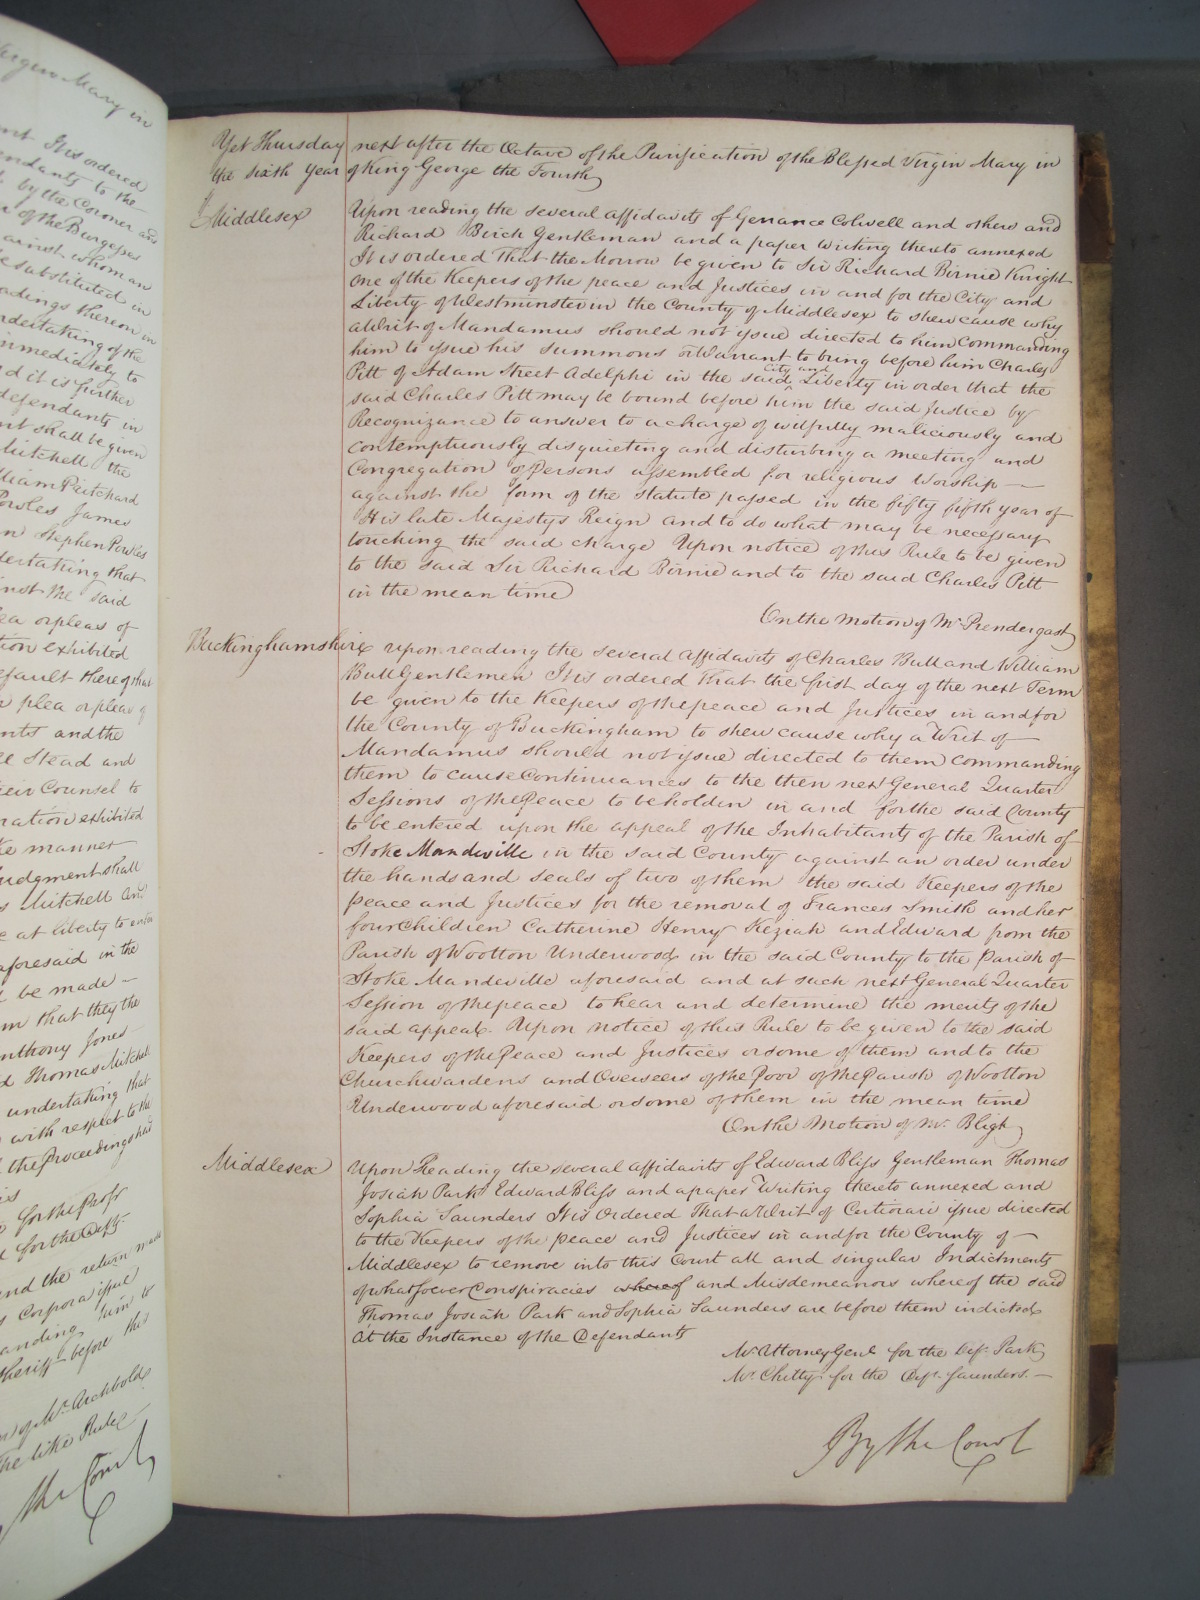 Virgin Mary in
It is ordered
endants to the
by the Coroner and
of the Burgesses
against whom an
substituted in
adings thereon in
ndertaking of the
mmediately to
d it is further
defendants in
nt shall be given
Mitchell the
lliam Pritchard
Powles James
n Stephen Powles
dertaking that
inst the said
ea or pleas of
tion exhibited
efault thereof that
plea or pleas of
nts and the
Stead and
eir Counsel to
ration exhibited
ke manner
udgment shall
s Mitchell and
at liberty to enter
aforesaid in the
be made
m that they the
nthony Jones
Thomas Mitchell
undertaking that
with respect to the
the Proceedings had
for the Prosr
for the Deft
and the return made
s Corpora issue
anding him to
Sheriff before this
of Mr Archbold
The like Rule
the Court
Yet Thursday next after the Octave of the Purification of the Blessed Virgin Mary in
the sixth year of King George the Fourth
Middlesex Upon reading the several affidavits of Colwell and others and
Richard Birch Gentleman and a paper writing thereto annexed
It is ordered That the Morrow be given to Sir Richard Birnie Knight
one of the Keepers of the peace and Justices in and for the City and
Liberty of Westminster in the County of Middlesex to shew cause why
a Writ of Mandamus should not issue directed to him Commanding
him to issue his summons or Warrant to bring before him Charles
Pitt of Adam Street Adelphi in the said City and Liberty in order that the
said Charles Pitt may be bound before him the said Justice by
Recognizance to answer to a charge of wilfully maliciously and
contemptuously disquieting and disturbing a meeting and
Congregation of Persons assembled for religious Worship
against the form of the statute passed in the fifty fifth year of
His late Majestys Reign and to do what may be necessary
touching the said charge Upon notice of this Rule to be given
to the said Sir Richard Birnie and to the said Charles Pitt
in the mean time
On the Motion of Mr Prendergast
Buckinghamshire upon reading the several Affidavits of Charles Bull and William
Bull Gentlemen It is ordered That the first day of the next Term
be given to the Keepers of the peace and Justices in and for
the County of Buckingham to shew cause why a Writ of
Mandamus should not issue directed to them commanding
them to cause Continuances to the then next General Quarter
Sessions of the Peace to be holden in and for the said County
to be entered upon the appeal of the Inhabitants of the Parish of
Stoke Mandeville in the said County against an order under
the hands and seals of two of them the said Keepers of the
peace and Justices for the removal of Frances Smith and her
four Children Catherine Henry Keziah and Edward from the
Parish of Wootton Underwood in the said County to the Parish of
Stoke Mandeville aforesaid and at such next General Quarter
Session of the peace to hear and determine the merits of the
said appeal. Upon notice of this Rule to be given to the said
Keepers of the Peace and Justices or some of them and to the
Churchwardens and Overseers of the Poor of the Parish of Wootton
Underwood aforesaid or some of them in the mean time
On the Motion of Mr. Bligh
Middlesex Upon Reading the several affidavits of Edward Bliss Gentleman Thomas
Josiah Park Edward Bliss and a paper Writing thereto annexed and
Sophia Saunders It is Ordered That a Writ of Certiorari issue directed
to the Keepers of the peace and Justices in and for the County of
Middlesex to remove into this Court all and singular Indictments
of whatsoever Conspiracies whereof and Misdemeanors whereof the said
Thomas Josiah Park and Sophia Saunders are before them indicted
At the Instance of the Defendants
Mr Attorney Genl for the Deft. Park
Mr. Chitty for the Deft. Saunders.
By the Court